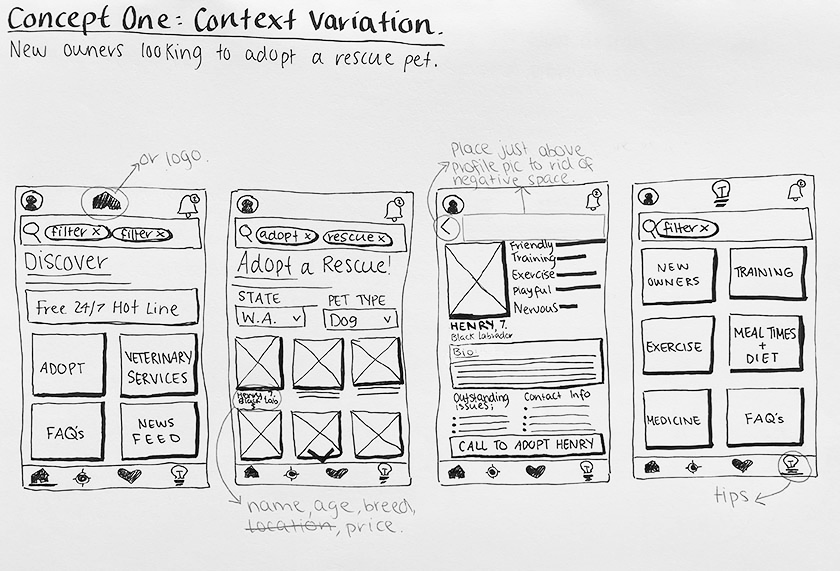 Concept One: Context Variation.
New owners looking to adopt a rescue pet.
or logo.
Place just above
profile pic to rid of
negative space.
filter x filter x
Discover
Free 24/7 Hot Line
ADOPT
VETERINARY
SERVICES
FAQ's
NEWS
FEED
adopt x rescue x
Adopt a Rescue!
STATE PET TYPE
W.A. Dog
Henry, 7.
Black Lab
name, age, breed,
location, price.
Friendly
Training
Exercise
Playful
Nervous
HENRY, 7.
Black Labrador
Bio
Outstanding
issues;
Contact Info
CALL TO ADOPT HENRY
filter x
NEW
OWNERS
TRAINING
EXERCISE
MEAL TIMES
+
DIET
MEDICINE
FAQ's
tips